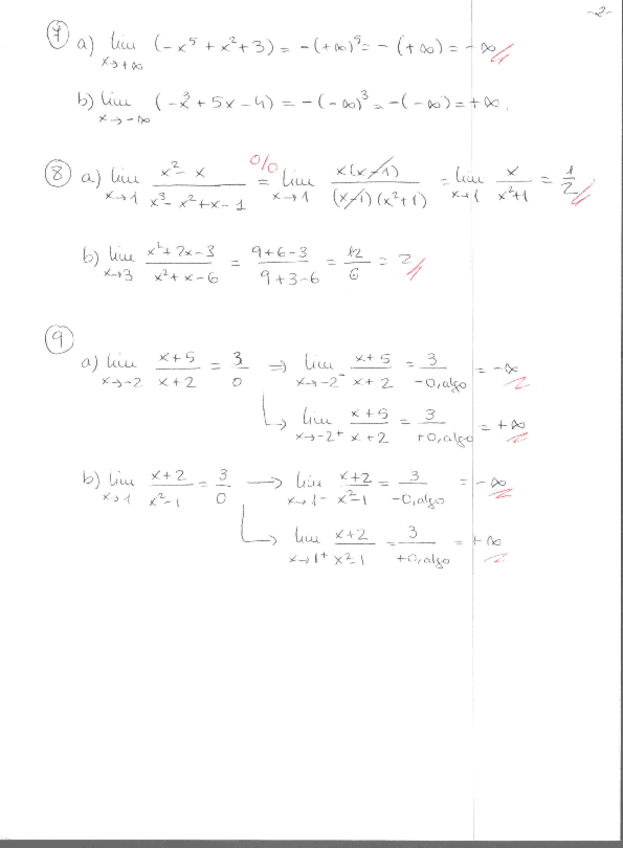 -2-
7 a) lim x→+∞ (-x⁵ + x² + 3) = -(+∞)⁵ = -(+∞) = -∞
b) lim x→-∞ (-x³ + 5x - 4) = -(-∞)³ = -(-∞) = +∞.
8 a) lim x→1 (x² - x)/(x³ - x² + x - 1) = 0/0 lim x→1 x(x-1)/((x-1)(x²+1)) = lim x→1 x/(x²+1) = 1/2
b) lim x→3 (x² + 2x - 3)/(x² + x - 6) = (9+6-3)/(9+3-6) = 12/6 = 2
9
a) lim x→-2 (x+5)/(x+2) = 3/0 ⇒ lim x→-2⁻ (x+5)/(x+2) = 3/(-0,algo) = -∞
↳ lim x→-2⁺ (x+5)/(x+2) = 3/(+0,algo) = +∞
b) lim x→1 (x+2)/(x²-1) = 3/0 → lim x→1⁻ (x+2)/(x²-1) = 3/(-0,algo) = -∞
↳ lim x→1⁺ (x+2)/(x²-1) = 3/(+0,algo) = +∞